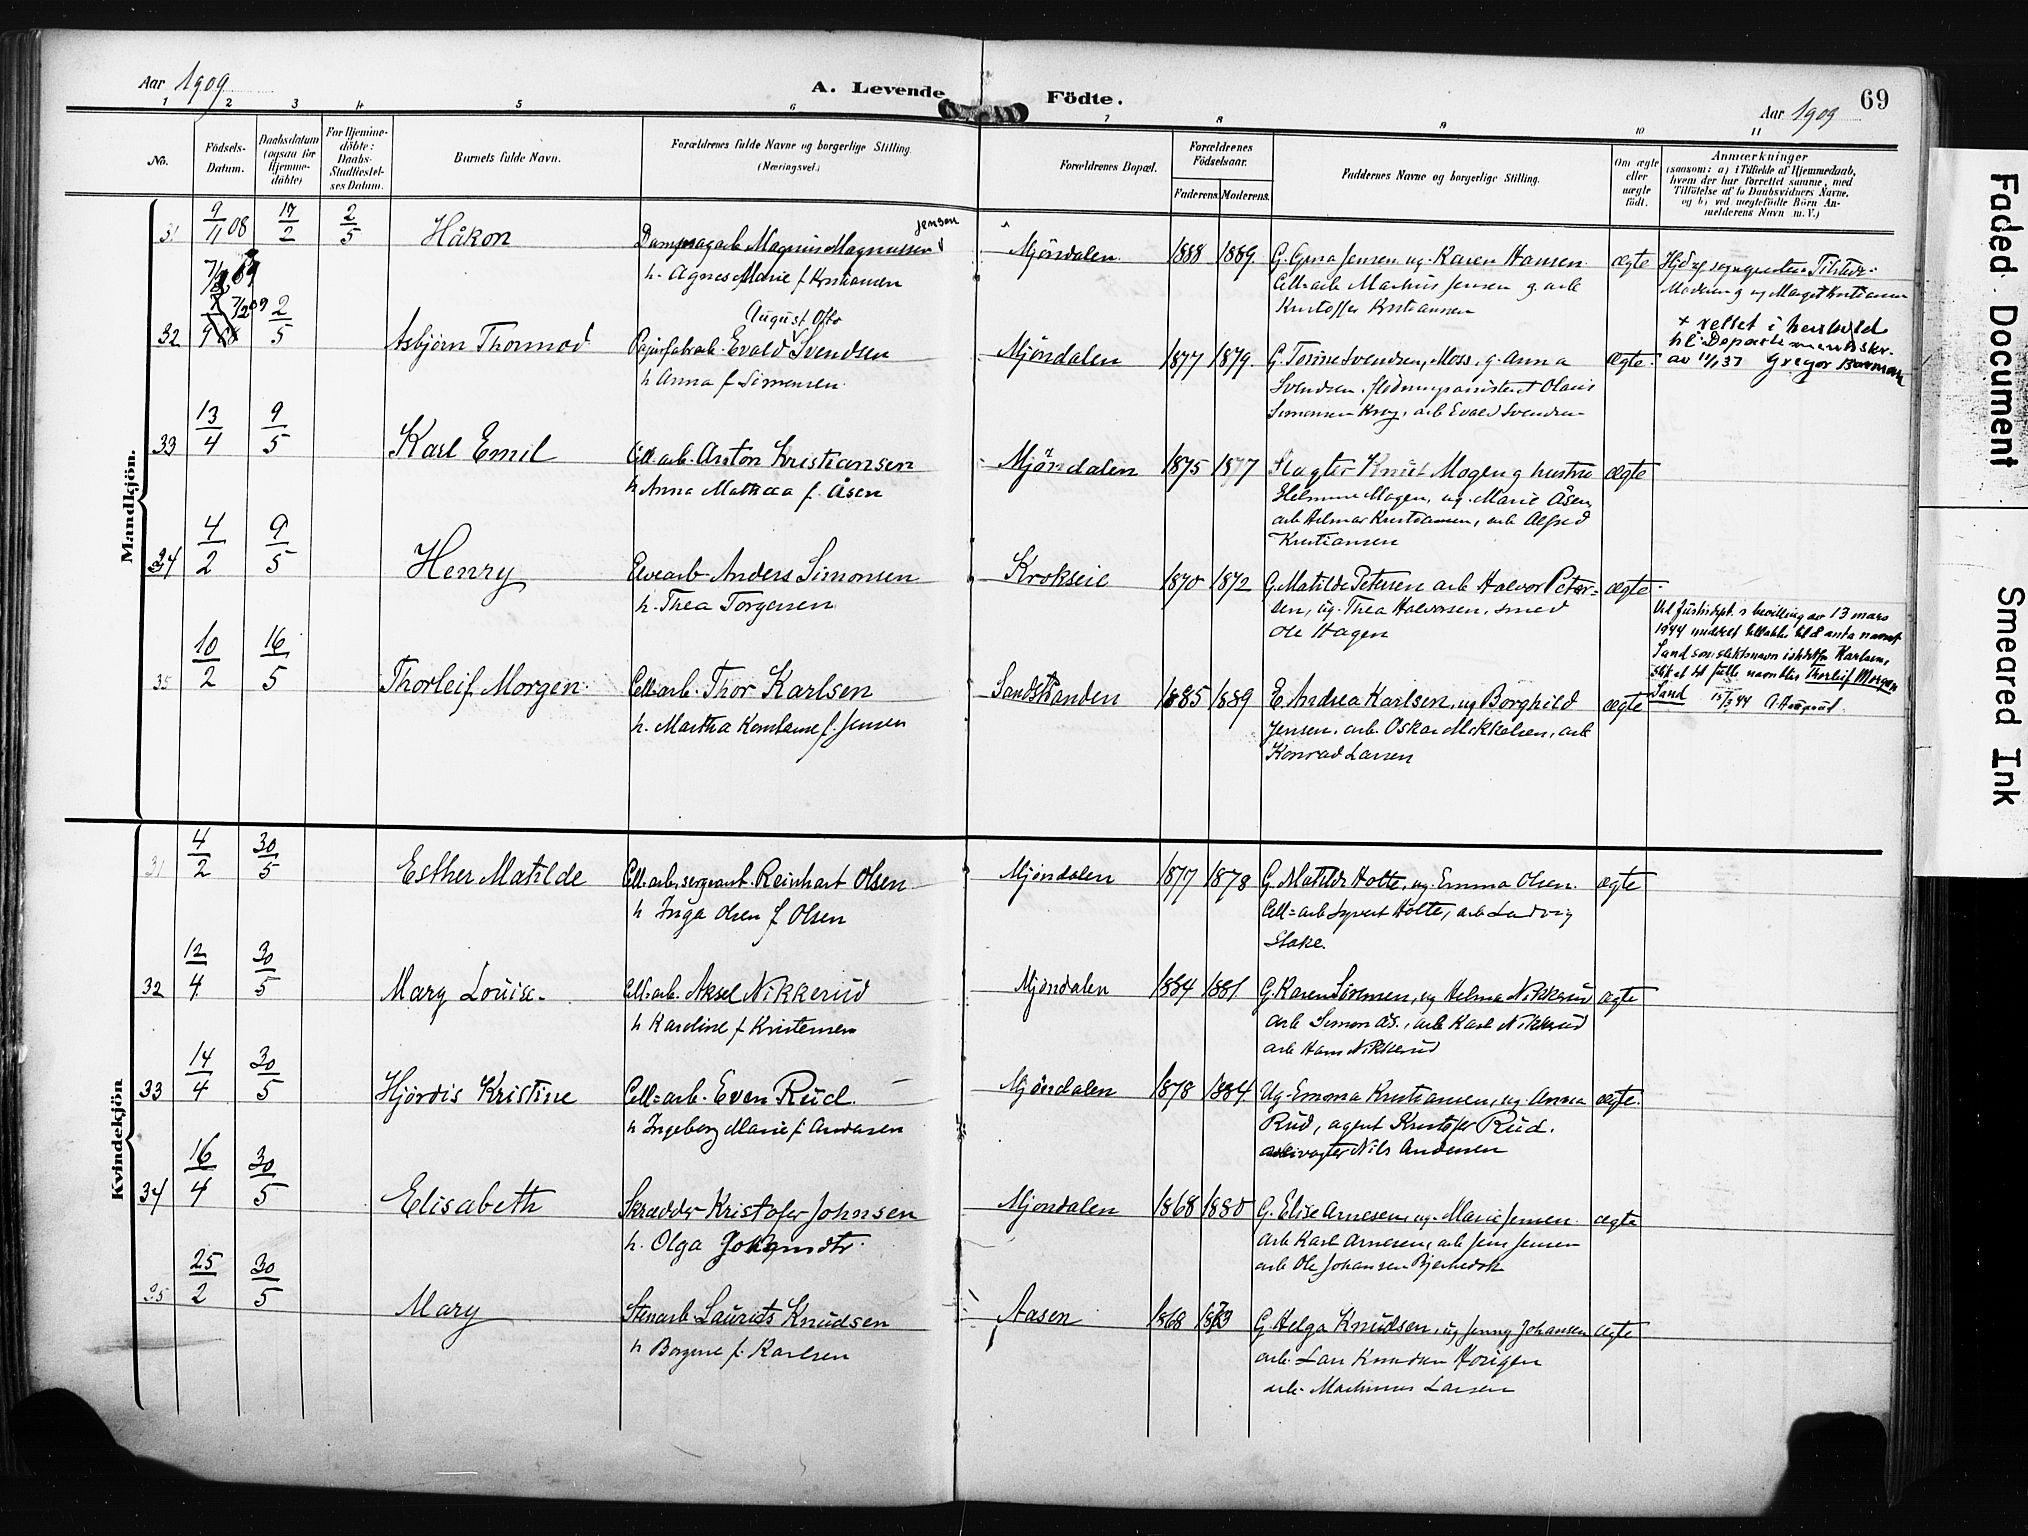 Aar 1909
A. Levende Födte.
Aar 1909
69
1 2 3 4 5 6 7 8 9 10 11
No.
Födsels-Datum.
Daabsdatum (ogsaa for Hjemme-döbte)
For Hjemme-döbte: Daabs-Stadfæstel-ses Datum.
Barnets fulde Navn.
Forældrenes fulde Navne og borgerlige Stilling. (Næringsvei.)
Forældrenes Bopæl.
Forældrenes Födselsaar.
Faderens. Moderens.
Faddernes Navne og borgerlige Stilling.
Om ægte eller uægte födt.
Anmærkninger
(saasom: a) i Tilfælde af Hjemmedaab,
hvem der har forrettet samme, med
Tilföielse af to Daabsvidners Navne.
og b) ved uegtefödte Börn An-
melderens Navn m. V.)
Mandkjön.
31 9/11 08 17/2 2/5 Håkon
Magnus Magnussen Jensen
h. Agnes Marie f. Kristiansen
Mjöndalen. 1888 1889.
Jensen ug. Karen Hansen
Cell=arb Jensen g. arb
Kristoffer Kristiansen
ægte
32 7/2 09 2/5 Asbjörn Thormod
August Otto
Evald Svendsen
h Anna f. Simensen.
Mjöndalen 1877 1879.
Svendsen, Moss, g. Anna
Svendsen, Olaus
Simensen Krog, arb Evald Svendsen
ægte
+ rettet i henhold
til Departementsskr.
av 11/1 37 Gregor
33 13/4 9/5 Karl Emil
Cell arb. Anton Kristiansen
h Anna Mathea f. Åsen
Mjöndalen 1875 1877
Slagter Knut Mogen g hustru
Helmine Mogen, ug. Marie Åsen,
arb Helmar Kristiansen, arb Alfred
Kristiansen
ægte
34 4/2 9/5 Henry
Elvearb Anders Simonsen
h. Thea Torgersen
Krokseie 1870 1872
G. Matilde Petersen arb Halvor Peter=
sen, ug. Thea Halvorsen, smed
Ole Hagen
ægte
35 10/2 16/5 Thorleif Morgen.
Cell=arb. Thor Karlsen
h. Martha Konstanse f. Jensen
Sandstranden 1885 1889
E. Andrea Karlsen, ug Borghild
Jensen, arb. Oskar Mikkelsen, arb
Konrad Larsen
ægte
Ved Justisdept.s bevilling av 13 mars
1944 tillatt til å anta navnet
Sand som slektsnavn istedetfor Karlsen,
slik at det fulle navn blir Thorleif Morgen
Sand 15/3 44
Kvindekjön
31 4/2 30/5 Esther Matilde
Cell=arb, sergeant. Reinhart Olsen
h Inga Olsen f. Olsen
Mjöndalen 1877 1878
G. Matilde Holte, ug. Emma Olsen.
Cell=arb Syvert Holte, arb Ludvig
Stake.
ægte
32 12/4 30/5 Mary Louise.
Cell=arb. Aksel Nikkerud
h Karoline f Kristensen
Mjöndalen 1884 1881
G. Karen Sörensen, ug Helma Nikkerud
arb Simon ds., arb Karl Nikkerud
arb Hans Nikkerud
ægte
33 14/4 30/5 Hjördis Kristine
Cell=arb. Even Rud.
h Ingeborg Marie f. Andersen
Mjöndalen 1878 1884
Ug. Emma Kristiansen, ug. Anna
Rud, agent Kristofer Rud.
Nils Andersen
ægte.
34 16/4 30/5 Elisabeth
Skrædder Kristofer Johnsen
h. Olga
Mjöndalen 1868 1880
G. Elise Arnesen, ug. Marie Jensen.
arb Karl Arnesen, arb Jens Jensen
arb Ole Johansen
ægte
35 25/2 30/5 Mary
Stenarb. Laurits Knudsen
h Borgine f. Karlsen
Aasen 1868 1873
G. Helga Knudsen, ug Jenny Johansen
arb. Lars Knudsen Horigen
arb. Martinius Larsen
ægte
Faded Document
Smeared Ink